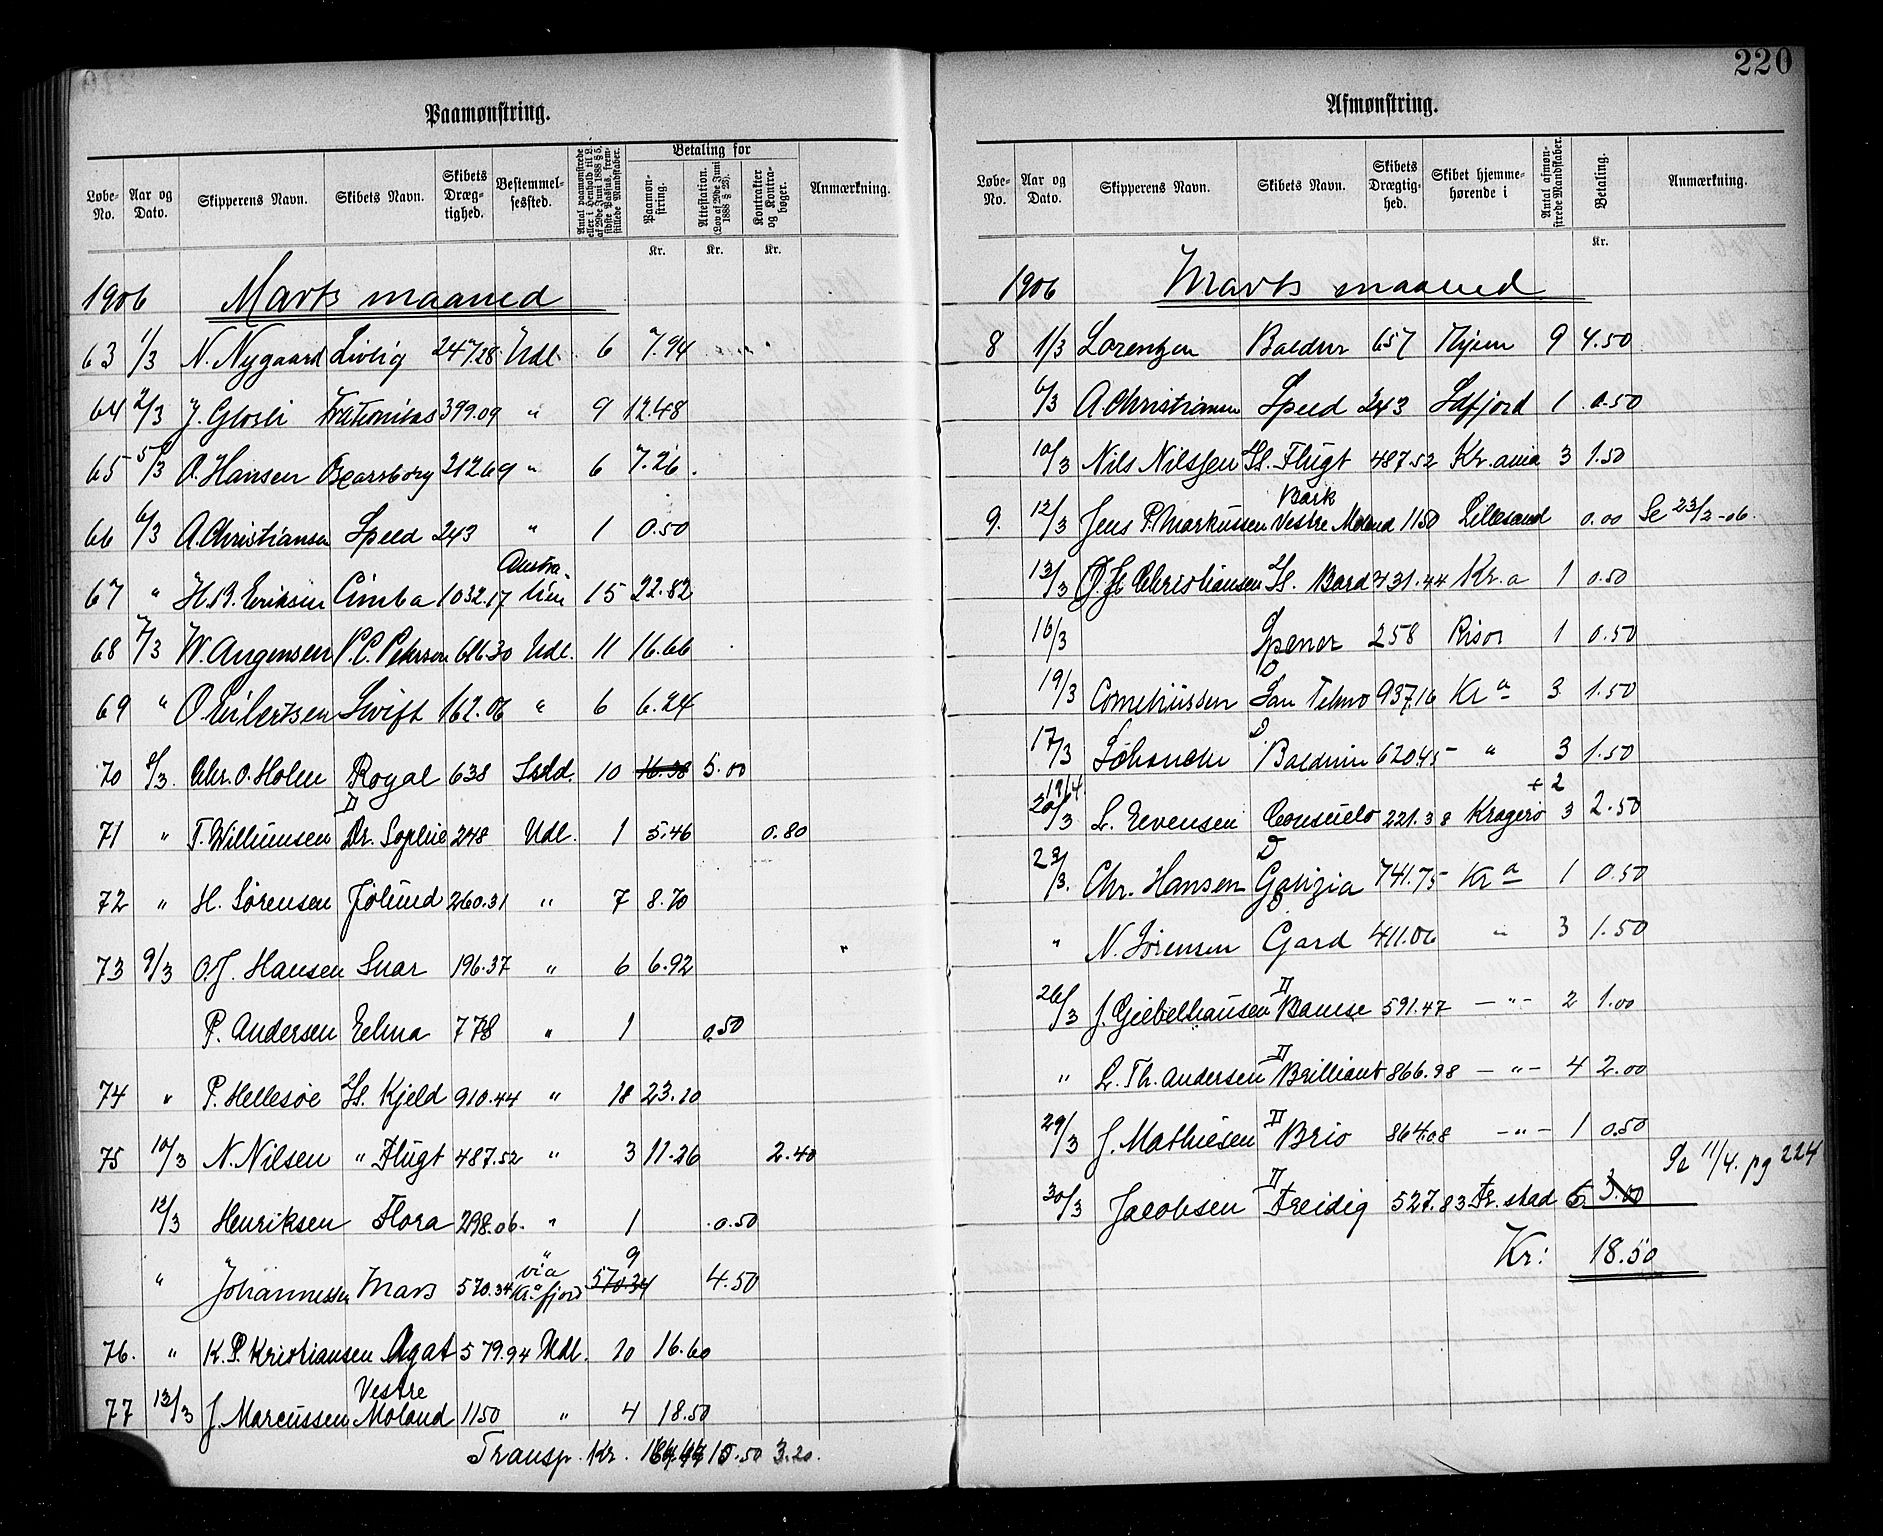 220
Paamønstring.
Løbe-No. Aar og Dato. Skipperens Navn. Skibets Navn. Skibets Dræg-tighed. Bestemmel-sessted. Antal paamønstrede eller i Henhold til L. af 29de Juni 1888 § 5, sidste Passus, frem-stillede Mandskaber. Betaling for Paamøn-string. Attestation. (Lov af 29de Juni 1888 § 23). Kontrakter og Kontra-bøger. Anmærkning.
Kr. Kr. Kr.
1906 Marts maaned
63 1/3 N. Nygaard Livlig 247.28 Udl. 6 7.94
64 2/3 J. Glosli Fraternitas 399.09 " 9 12.48
65 5/3 O. Hansen Oscarsborg 212.69 " 6 7.26
66 6/3 A. Christiansen Speed 243 " 1 0.50
67 " H. B. Eriksen Cimba 1032.17 Austra-lien 15 22.82
68 7/3 W. Angensen P. C. Peterson 616.30 Udl. 11 16.66
69 " O Eilertsen Swift 162.06 " 6 6.24
70 8/3. Chr. O. Holm Royal 638 Isld. 10 16.38 5.00
71 " T. Willumsen D Dr. Sophie 248 Udl. 1 5.46 0.80
72 " H. Sørensen Jølund 260.31 " 7 8.70
73 9/3 O. J. Hansen Snar 196.37 " 6 6.92
P. Andersen Elma 778 " 1 0.50
74 " P. Hellesøe Hs. Kjeld 910.44 " 18 23.20
75 10/3 N. Nilsen " Flugt 487.52 " 3 11.26 2.40
12/3 Henriksen Flora 298.06 " 1 0.50
" Johannessen Mars 570.34 " via Kr.a fjord 570.34 9 4.50
76. " K. P. Kristiansen Agat 579.94 Udl. 10 16.60
77 13/3 J. Marcussen Vestre Moland 1150 " 4 18.50
Transp. Kr. 10.50 3.20.
Afmønstring.
Løbe-No. Aar og Dato. Skipperens Navn. Skibets Navn. Skibets Drægtig-hed. Skibet hjemme-hørende i Antal afmøn-strede Mandskaber. Betaling. Anmærkning.
Kr.
1906 Marts maaned
8 1/3 Lorentzen Baldur 657 Hjem 9 4.50
6/3 A. Christiansen Speed 243 Idfjord 1 0.50
10/3 Nils Nilssen Hs. Flugt 487.52 Kr. ania 3 1.50
9. 12/3 Jens P. Markussen Bark Vestre Moland 1150 Lillesand 0.00 Se 23/2-06.
13/3 O. H. Christiansen Hs. Bard 731.44 Kr.a 1 0.50
16/3 Spener 258 Risør 1 0.50
19/3 Corneliussen D San Telmo 937.16 Kr a 3 1.50
17/3 D. Baldrin 620.45 " 3 1.50
20/3 19/4 L. Evensen Consuelo 221.38 Kragerø 3 + 2 2.50
22/3. Chr. Hansen D Galizia 741.75 Kr a 1 0.50
" N. Sørensen D Gard 411.06 " 3 1.50
26/3 J. Giebelhausen D Bamse 591.47 — " — 2 1.00
" L. Th. Andersen D Brilliant 866.98 — " — 4 2.00
29/3 J. Mathiesen D Brio 864.08 — " — 1 0.50
30/3 Jacobsen D Freidig 527.83 Fr. stad 6 3.00 Se 11/4. pg 224
Kr: 18.50